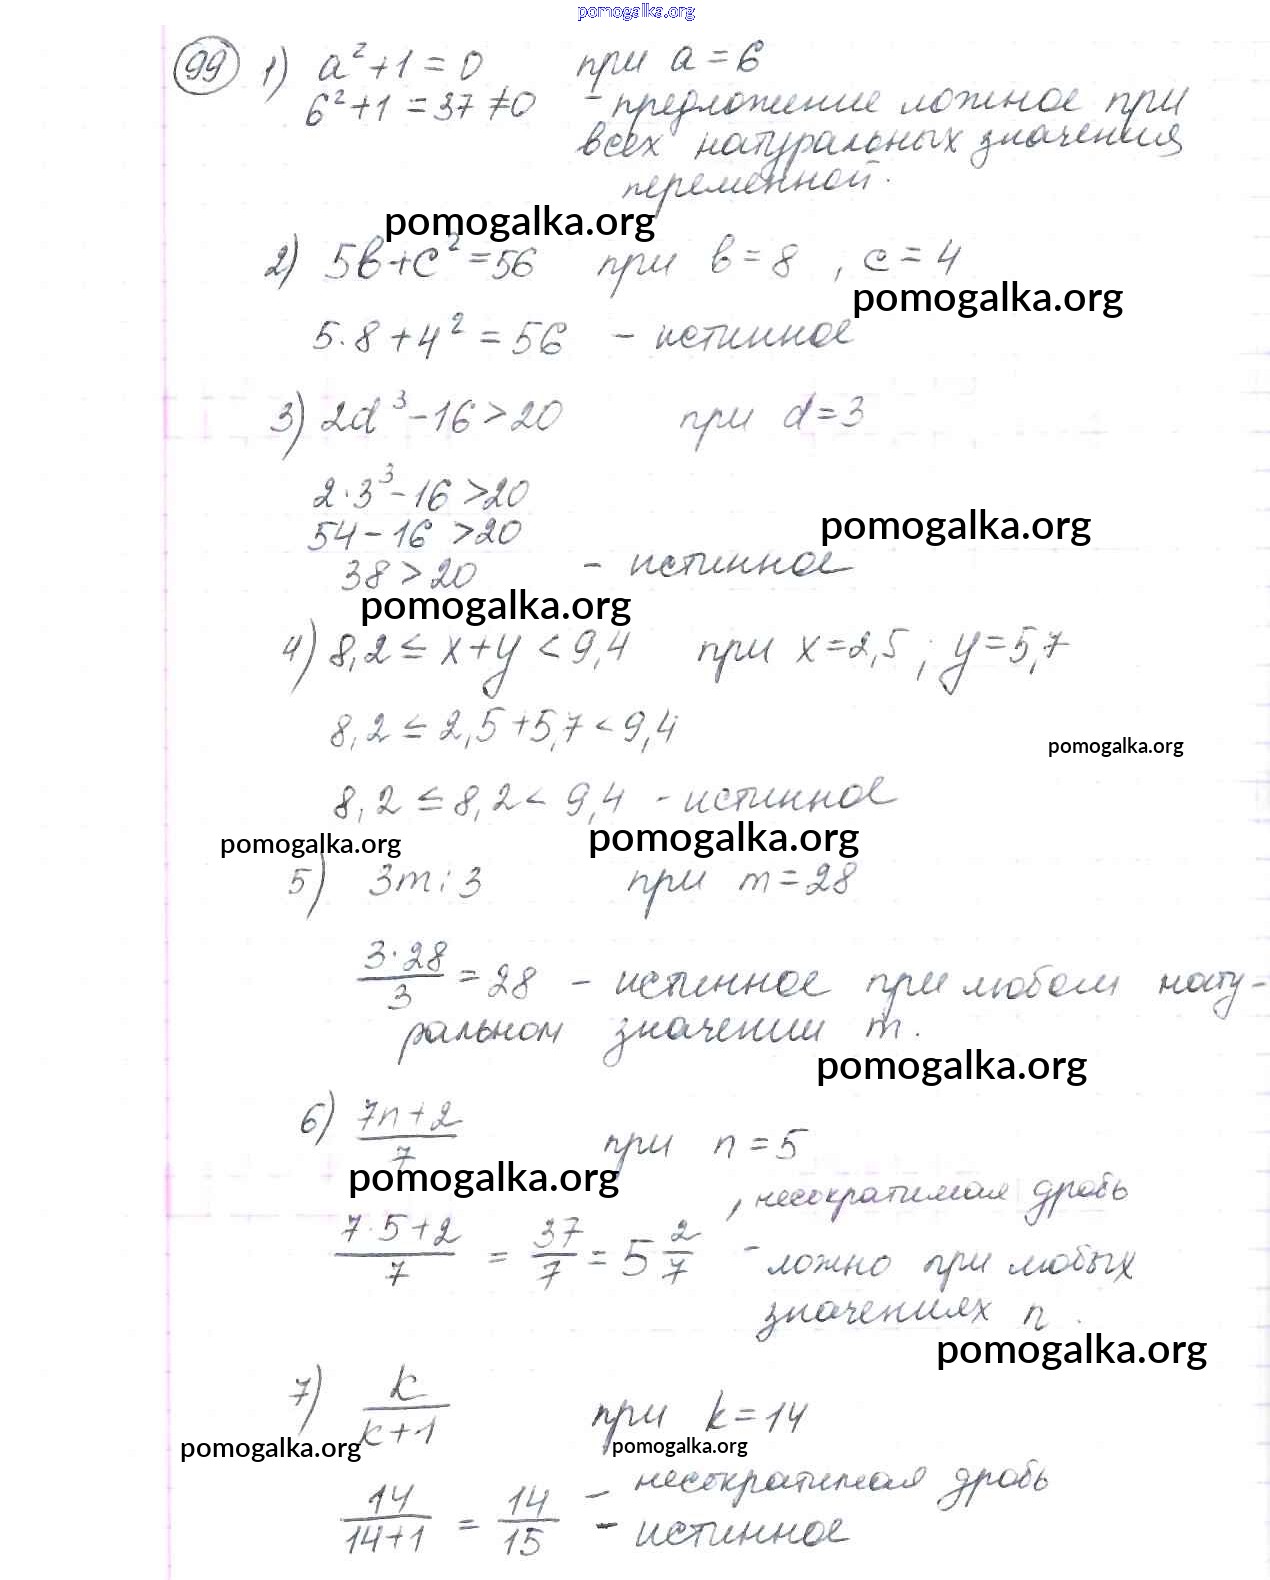 pomogalka.org
99 1) a²+1=0 при a=6
6²+1=37≠0 - предложение ложное при
всех натуральных значения
переменной.
pomogalka.org
2) 5в+c²=56 при в=8, c=4
pomogalka.org
5·8+4²=56 - истинное
3) 2d³-16>20 при d=3
2·3³-16>20
pomogalka.org
54-16>20
38>20 - истинное
pomogalka.org
4) 8,2≤x+y<9,4 при x=2,5; y=5,7
8,2≤2,5+5,7<9,4
pomogalka.org
8,2≤8,2<9,4 - истинное
pomogalka.org
pomogalka.org
5) 3m:3 при m=28
3·28/3=28 - истинное при любом нату-
ральном значении m.
pomogalka.org
6) 7n+2/7 при n=5
pomogalka.org
, несократимая дробь
7·5+2/7=37/7=5 2/7 - ложно при любых
значениях n.
pomogalka.org
7) k/k+1 при k=14
pomogalka.org
pomogalka.org
- несократимая дробь
14/14+1=14/15 - истинное